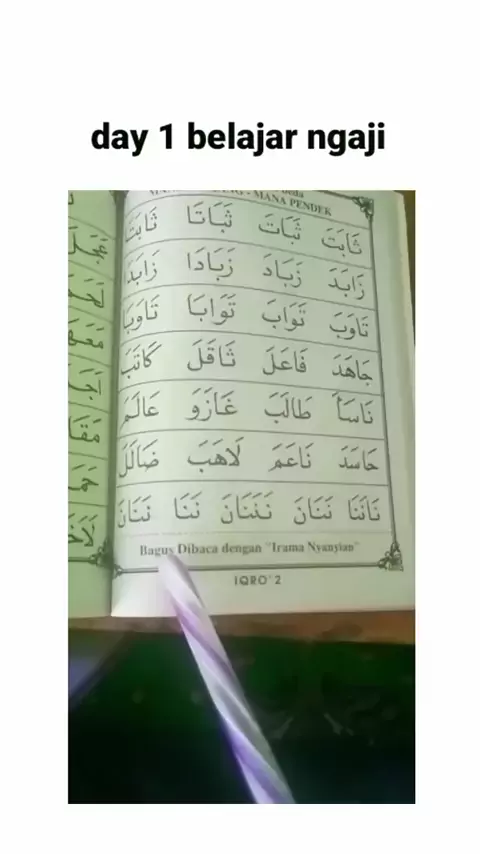 day 1 belajar ngaji
- MANA PENDEK
ثَابَتَ ثَبَاتَ ثَبَاتَا ثَابَتَ
زَابَدَ زَبَادَ زَبَادَا زَابَدَا
تَاوَبَ تَوَابَ تَوَابَا تَاوَبَا
جَاهَدَ فَاعَلَ ثَاقَلَ كَاتَبَ
نَاسَأَ طَالَبَ غَازَوَ عَالَمَ
حَاسَدَ نَاعَمَ لَاهَبَ ضَالَلَ
نَانَنَا نَنَانَ نَنَنَانَ نَنَا نَنَانَ
Bagus Dibaca dengan "Irama Nyanyian"
IQRO' 2